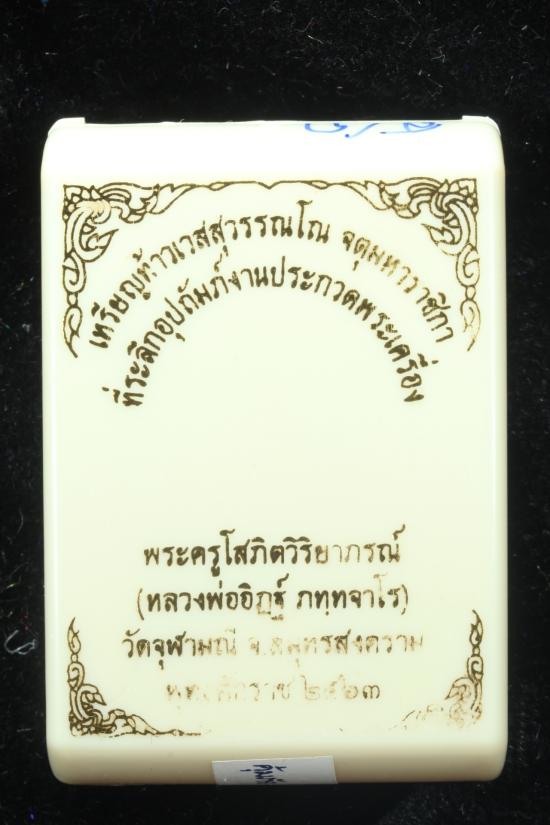 เหรียญท้าวเวสสุวรรณโณ จตุมหาราชิกา
ที่ระลึกอุปถัมภ์งานประกวดพระเครื่อง
พระครูโสภิตวิริยาภรณ์
(หลวงพ่ออิฏฐ์ ภทฺทจาโร)
วัดจุฬามณี จ.สมุทรสงคราม
พุทธศักราช ๒๕๖๓